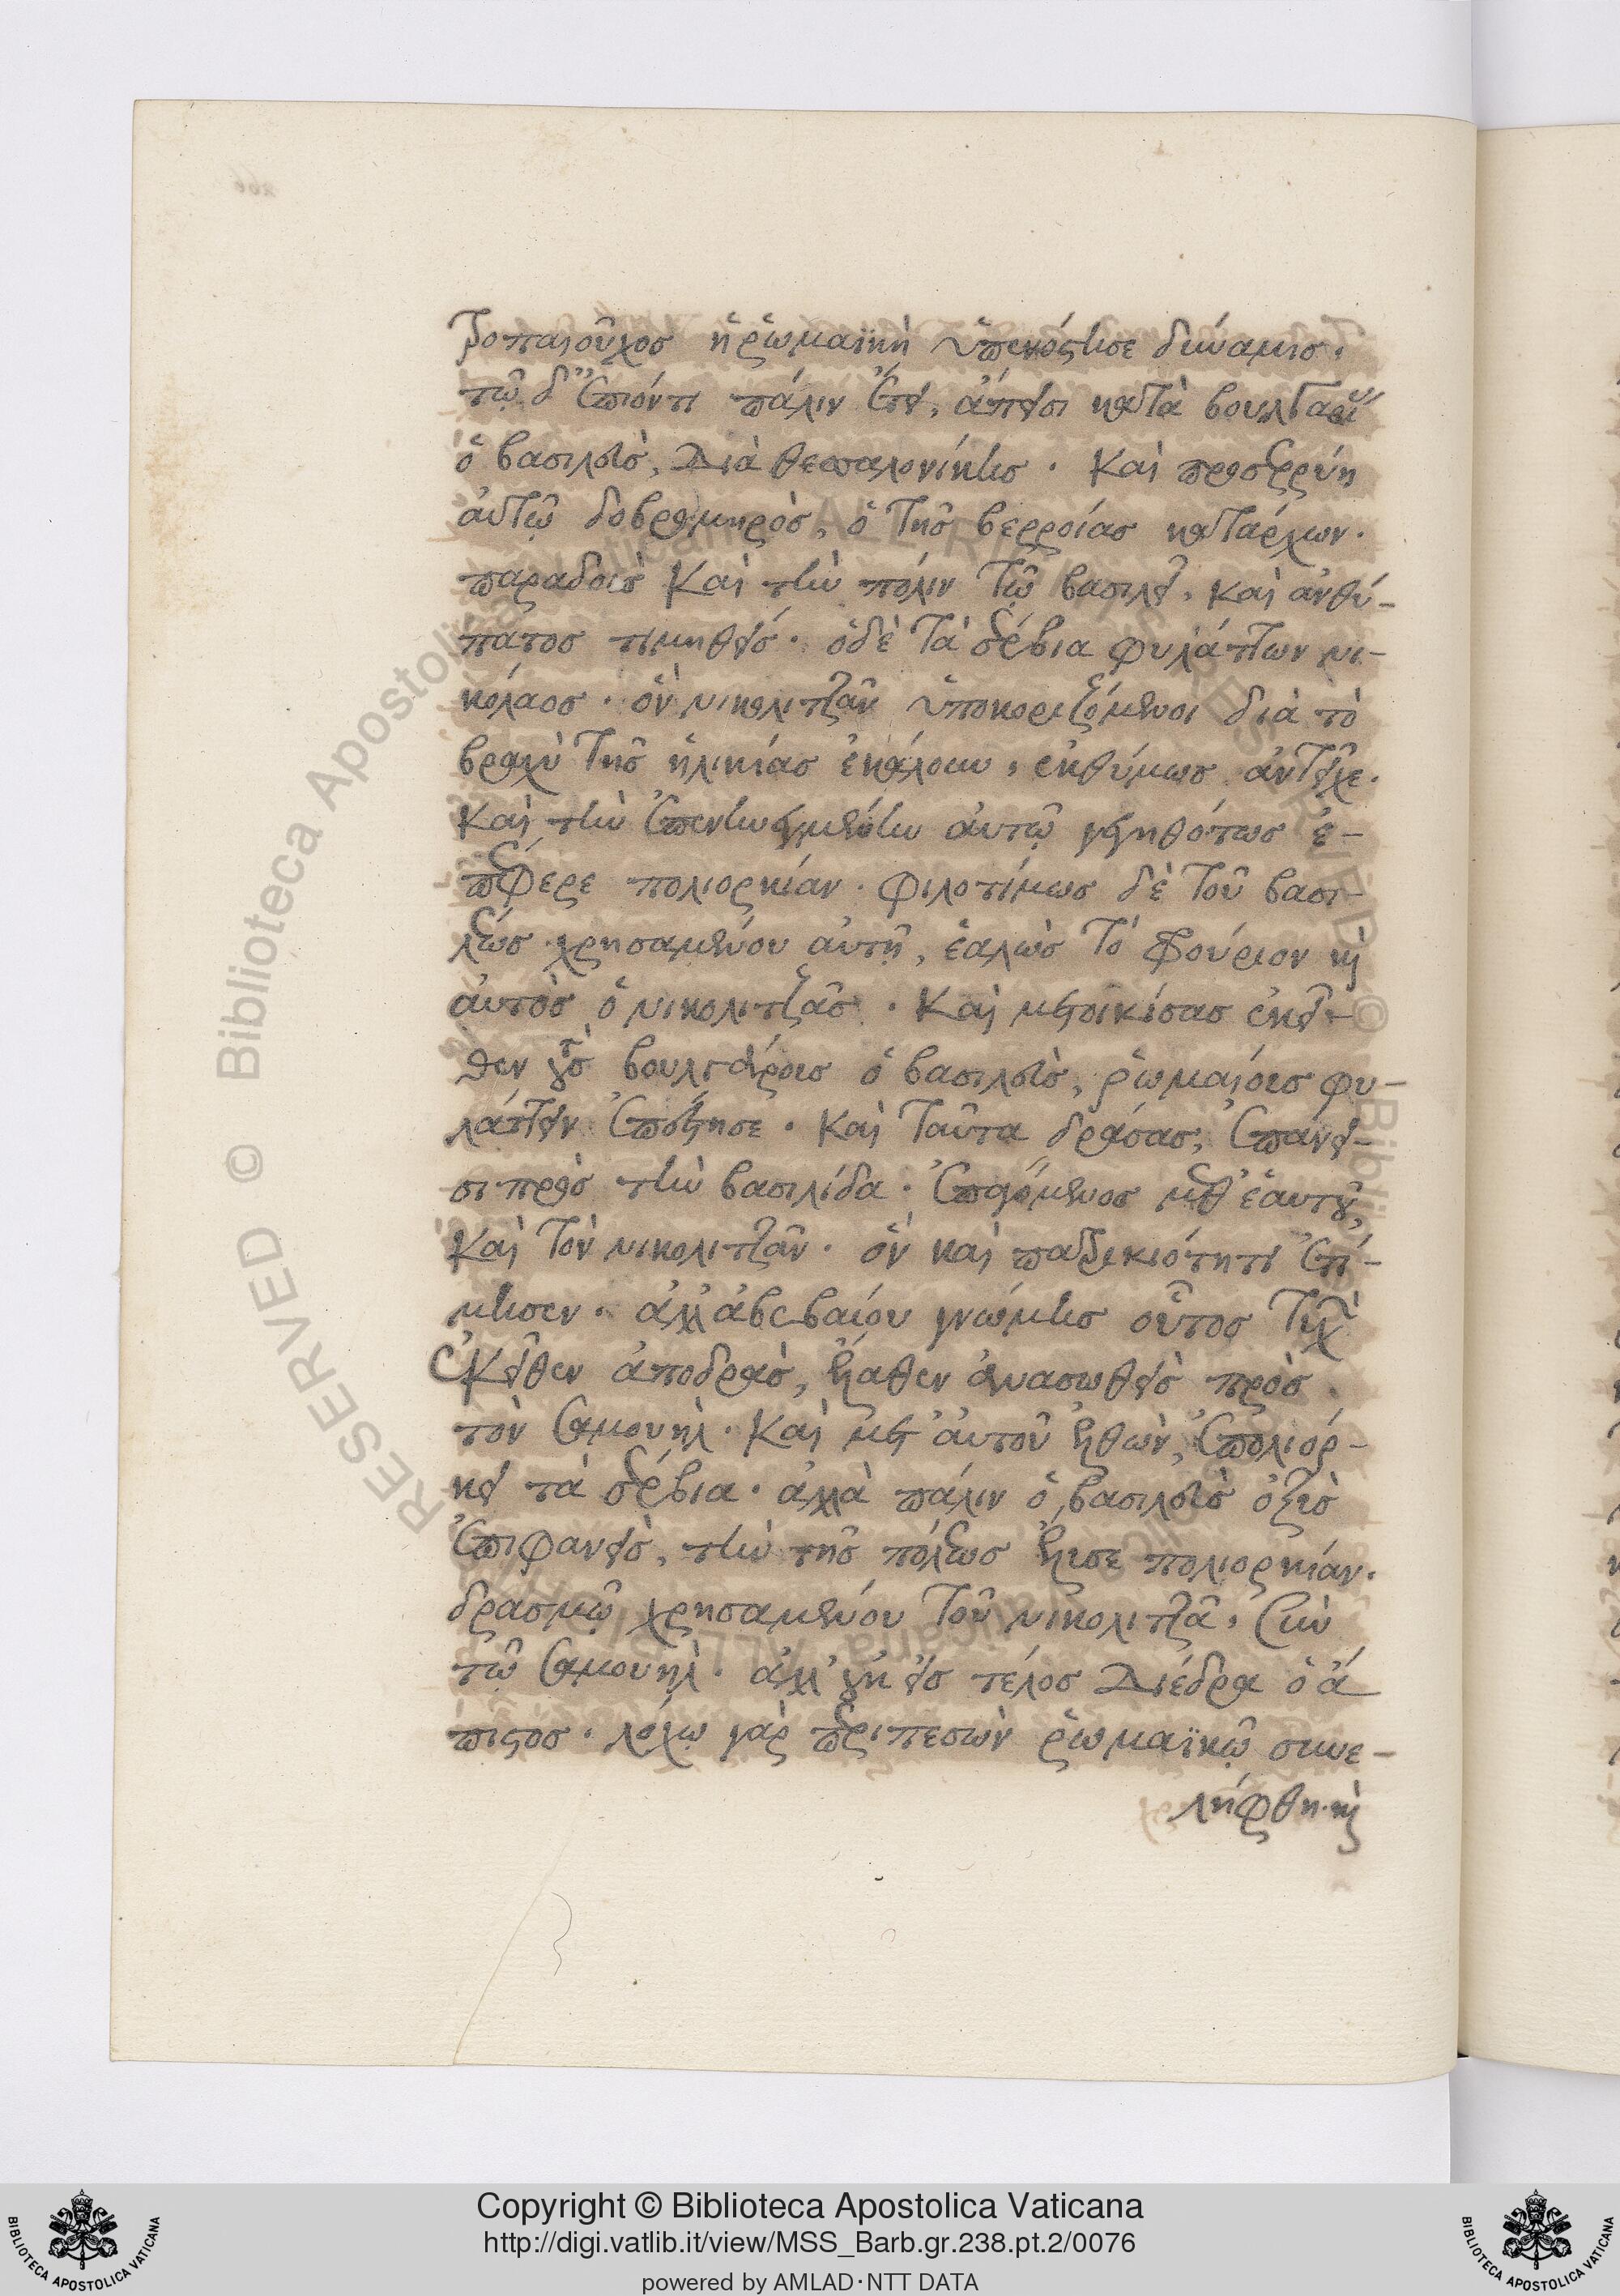 τροπαιοῦχος ἡ ῥωμαϊκὴ ὑπενόστησε δύναμις.
τῷ δ' ἐπιόντι πάλιν ἔτει, ἄπεισι κατὰ βουλγάρων
ὁ βασιλεὺς, διὰ θεσσαλονίκης. καὶ προσερρύη
αὐτῷ δοβρομηρὸς, ὁ τῆς βερροίας κατάρχων.
παραδοὺς καὶ τὴν πόλιν τῷ βασιλεῖ. καὶ ἀνθύ-
πατος τιμηθείς. ὁ δὲ τὰ σέρβια φυλάττων νι-
κόλαος. ὃν νικολιτζᾶν ὑποκοριζόμενοι διὰ τὸ
βραχὺ τῆς ἡλικίας ἐκάλουν, ἐκθύμως ἀντεῖχε.
καὶ τὴν ἐπενηνεγμένην αὐτῷ γεγηθότως ἐ-
πέφερε πολιορκίαν. φιλοτίμως δὲ τοῦ βασι-
λέως χρησαμένου αὐτῇ, ἑάλω τὸ φρούριον καὶ
αὐτὸς ὁ νικολιτζᾶς. καὶ μετοικίσας ἐκεῖ-
θεν τοὺς βουλγάρους ὁ βασιλεὺς, ῥωμαίους φυ-
λάττειν ἐπέστησε. καὶ ταῦτα δράσας, ἐπάνει-
σι πρὸς τὴν βασιλίδα. ἐπαγόμενος μεθ' ἑαυτοῦ,
καὶ τὸν νικολιτζᾶν. ὃν καὶ πατρικιότητι ἐτί-
μησεν. ἀλλ' ἀβεβαίου γνώμης οὗτος τυχὼν
ἐκεῖθεν ἀποδρὰς, ἦλθεν ἀνασωθεὶς πρὸς
τὸν σαμουήλ. καὶ μετ' αὐτοῦ ἐλθὼν, ἐπολιόρ-
κει τὰ σέρβια. ἀλλὰ πάλιν ὁ βασιλεὺς ὀξὺς
ἐπιφανεὶς, τὴν τῆς πόλεως ἔλυσε πολιορκίαν.
δρασμῷ χρησαμένου τοῦ νικολιτζᾶ, σὺν
τῷ σαμουήλ. ἀλλ' οὐκ εἰς τέλος διέδρα ὁ ἄ
πιστος. λόχῳ γὰρ περιπεσὼν ῥωμαϊκῷ συνε-
λήφθη. καὶ
Copyright © Biblioteca Apostolica Vaticana
http://digi.vatlib.it/view/MSS_Barb.gr.238.pt.2/0076
powered by AMLAD·NTT DATA